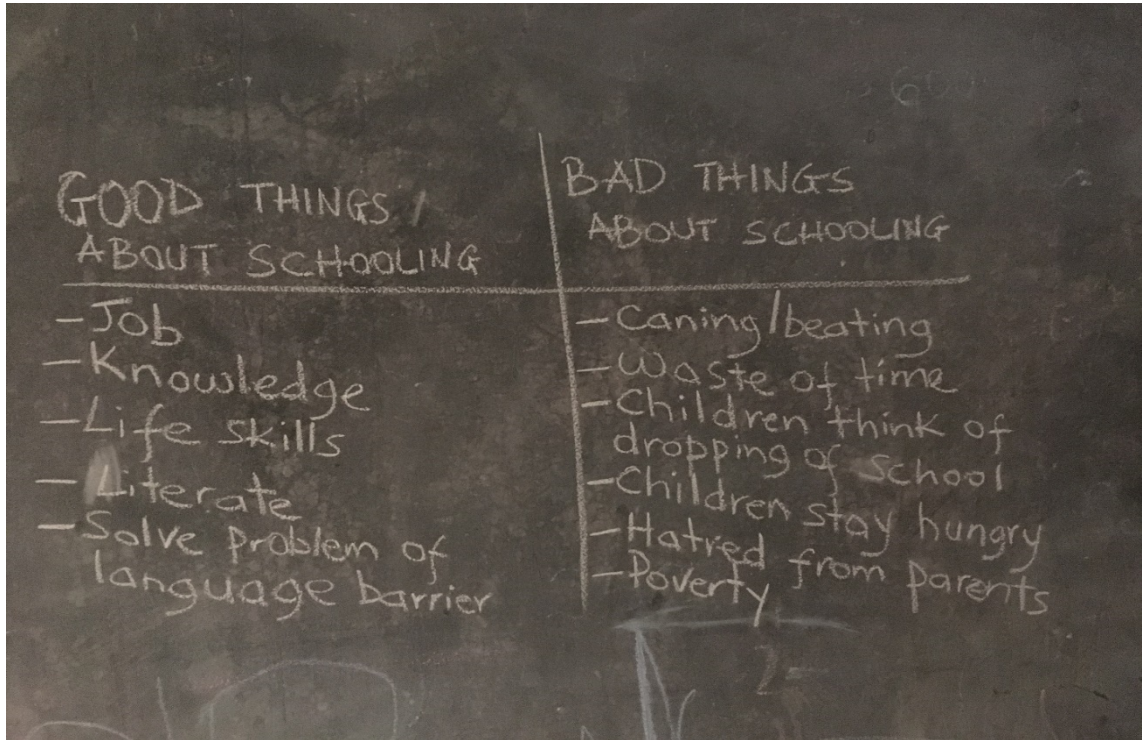 GOOD THINGS
ABOUT SCHOOLING
- Job
- Knowledge
- Life skills
- Literate
- Solve problem of
language barrier
BAD THINGS
ABOUT SCHOOLING
- Caning/beating
- Waste of time
- Children think of
dropping of school
- Children stay hungry
- Hatred from parents
- Poverty